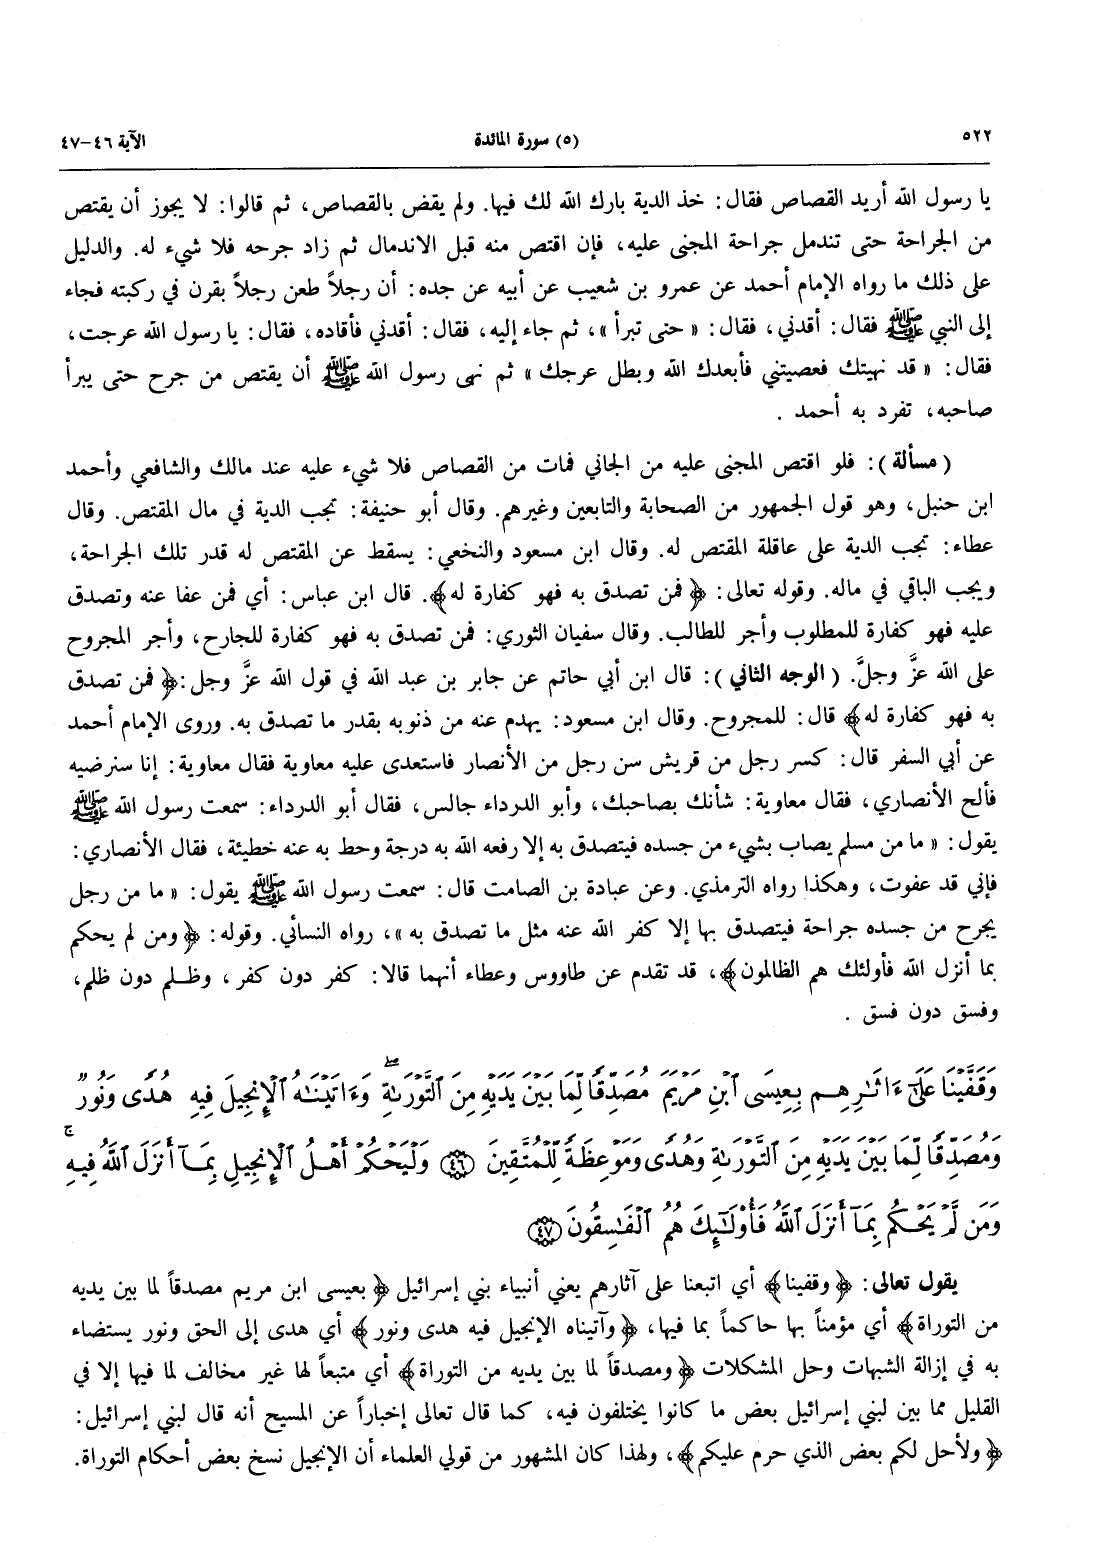 ٥٢٢ (٥) سورة المائدة الآية ٤٦-٤٧
يا رسول الله أريد القصاص فقال: خذ الدية بارك الله لك فيها. ولم يقض بالقصاص، ثم قالوا: لا يجوز أن يقتص
من الجراحة حتى تندمل جراحة المجنى عليه، فإن اقتص منه قبل الاندمال ثم زاد جرحه فلا شيء له. والدليل
على ذلك ما رواه الإمام أحمد عن عمرو بن شعيب عن أبيه عن جده: أن رجلاً طعن رجلاً بقرن في ركبته فجاء
إلى النبي ﷺ فقال: أقدني، فقال: « حتى تبرأ »، ثم جاء إليه، فقال: أقدني فأقاده، فقال: يا رسول الله عرجت،
فقال: « قد نهيتك فعصيتني فأبعدك الله وبطل عرجك » ثم نهى رسول الله ﷺ أن يقتص من جرح حتى يبرأ
صاحبه، تفرد به أحمد .
( مسألة ): فلو اقتص المجنى عليه من الجاني فمات من القصاص فلا شيء عليه عند مالك والشافعي وأحمد
ابن حنبل، وهو قول الجمهور من الصحابة والتابعين وغيرهم. وقال أبو حنيفة: تجب الدية في مال المقتص. وقال
عطاء: تجب الدية على عاقلة المقتص له. وقال ابن مسعود والنخعي: يسقط عن المقتص له قدر تلك الجراحة،
ويجب الباقي في ماله. وقوله تعالى: ﴿ فمن تصدق به فهو كفارة له﴾. قال ابن عباس: أي فمن عفا عنه وتصدق
عليه فهو كفارة للمطلوب وأجر للطالب. وقال سفيان الثوري: فمن تصدق به فهو كفارة للجارح، وأجر المجروح
على الله عزَّ وجلَّ. ( الوجه الثاني ): قال ابن أبي حاتم عن جابر بن عبد الله في قول الله عزَّ وجل:﴿ فمن تصدق
به فهو كفارة له﴾ قال: للمجروح. وقال ابن مسعود: يهدم عنه من ذنوبه بقدر ما تصدق به. وروى الإمام أحمد
عن أبي السفر قال: كسر رجل من قريش سن رجل من الأنصار فاستعدى عليه معاوية فقال معاوية: إنا سنرضيه
فألح الأنصاري، فقال معاوية: شأنك بصاحبك، وأبو الدرداء جالس، فقال أبو الدرداء: سمعت رسول الله ﷺ
يقول: « ما من مسلم يصاب بشيء من جسده فيتصدق به إلا رفعه الله به درجة وحط به عنه خطيئة، فقال الأنصاري:
فإني قد عفوت، وهكذا رواه الترمذي. وعن عبادة بن الصامت قال: سمعت رسول الله ﷺ يقول: « ما من رجل
يجرح من جسده جراحة فيتصدق بها إلا كفر الله عنه مثل ما تصدق به »، رواه النسائي. وقوله: ﴿ ومن لم يحكم
بما أنزل الله فأولئك هم الظالمون﴾، قد تقدم عن طاووس وعطاء أنهما قالا: كفر دون كفر، وظلم دون ظلم،
وفسق دون فسق .
وَقَفَّيْنَا عَلَىٰٓ ءَاثَٰرِهِم بِعِيسَى ٱبْنِ مَرْيَمَ مُصَدِّقًا لِّمَا بَيْنَ يَدَيْهِ مِنَ ٱلتَّوْرَىٰةِ ۖ وَءَاتَيْنَٰهُ ٱلْإِنجِيلَ فِيهِ هُدًى وَنُورٌ
وَمُصَدِّقًا لِّمَا بَيْنَ يَدَيْهِ مِنَ ٱلتَّوْرَىٰةِ وَهُدًى وَمَوْعِظَةً لِّلْمُتَّقِينَ ﴿٤٦﴾ وَلْيَحْكُمْ أَهْلُ ٱلْإِنجِيلِ بِمَآ أَنزَلَ ٱللَّهُ فِيهِ ۚ
وَمَن لَّمْ يَحْكُم بِمَآ أَنزَلَ ٱللَّهُ فَأُو۟لَٰٓئِكَ هُمُ ٱلْفَٰسِقُونَ ﴿٤٧﴾
يقول تعالى: ﴿ وقفينا﴾ أي اتبعنا على آثارهم يعني أنبياء بني إسرائيل ﴿ بعيسى ابن مريم مصدقاً لما بين يديه
من التوراة﴾ أي مؤمناً بها حاكماً بما فيها، ﴿ وآتيناه الإنجيل فيه هدى ونور ﴾ أي هدى إلى الحق ونور يستضاء
به في إزالة الشبهات وحل المشكلات ﴿ ومصدقاً لما بين يديه من التوراة﴾ أي متبعاً لها غير مخالف لما فيها إلا في
القليل مما بين لبني إسرائيل بعض ما كانوا يختلفون فيه، كما قال تعالى إخباراً عن المسيح أنه قال لبني إسرائيل:
﴿ ولأحل لكم بعض الذي حرم عليكم﴾، ولهذا كان المشهور من قولي العلماء أن الإنجيل نسخ بعض أحكام التوراة.